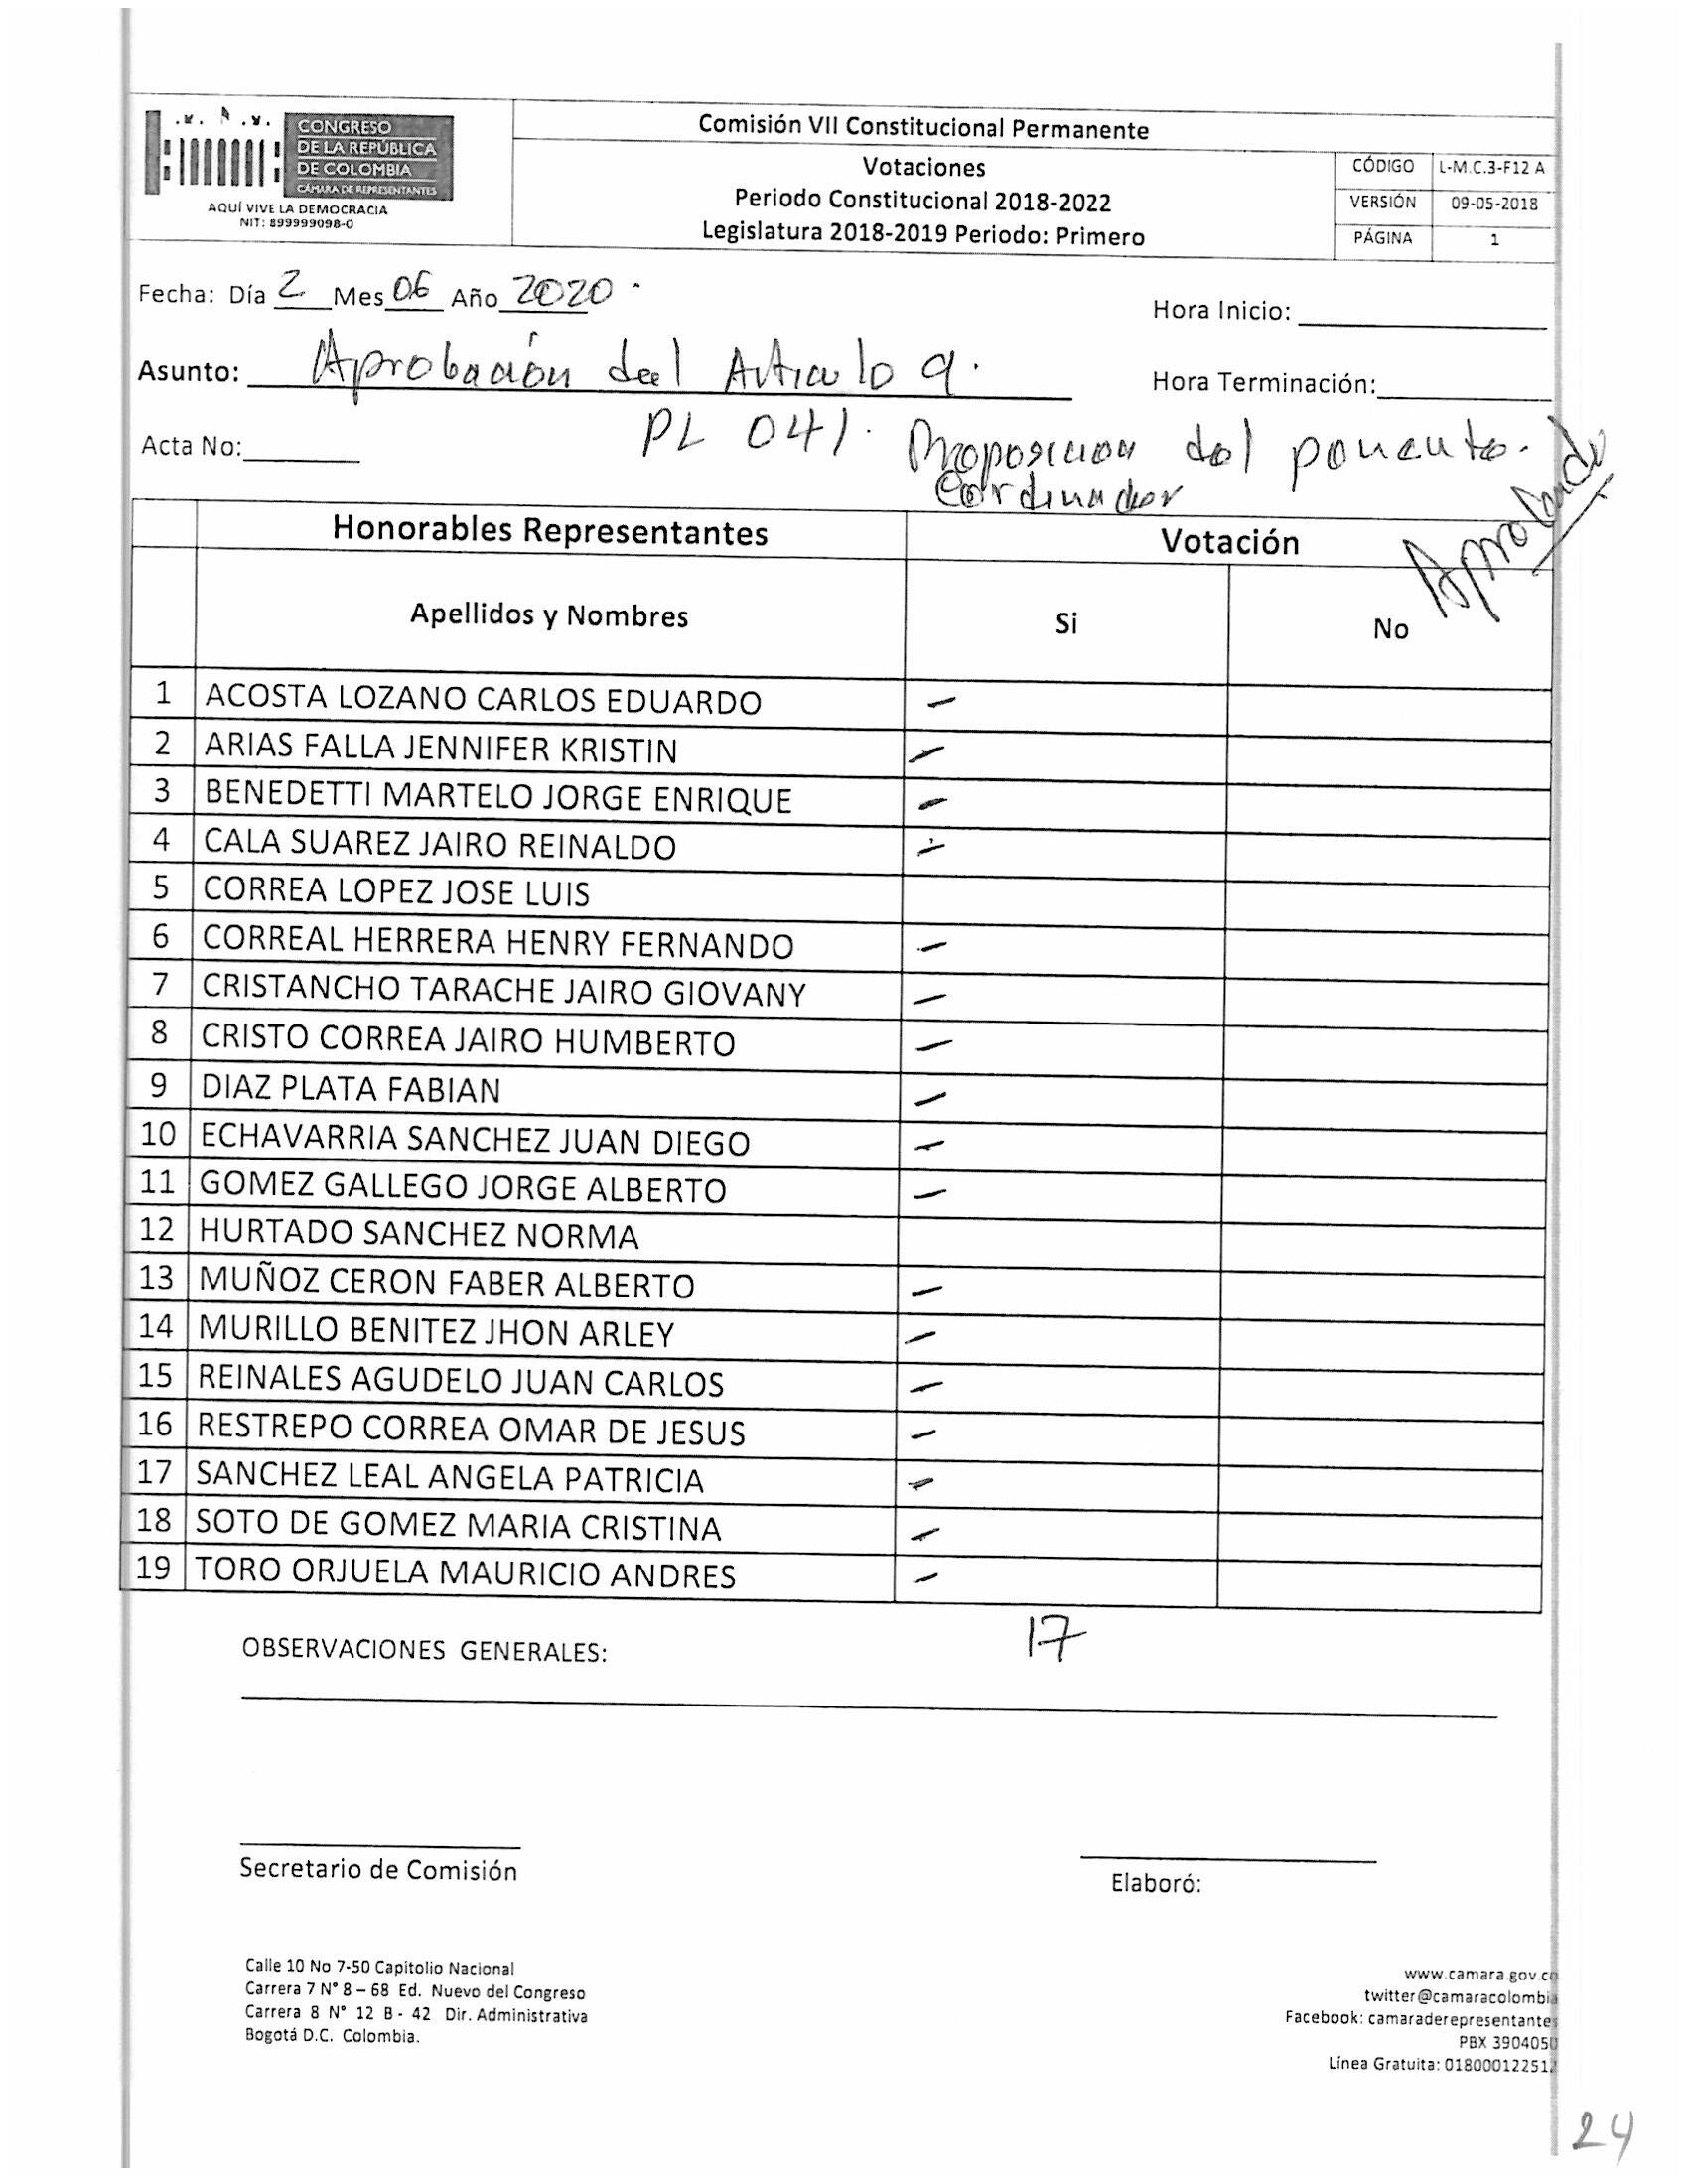 CONGRESO
DE LA REPÚBLICA
DE COLOMBIA
CÁMARA DE REPRESENTANTES
AQUÍ VIVE LA DEMOCRACIA
NIT: 899999098-0
Comisión VII Constitucional Permanente
Votaciones
Periodo Constitucional 2018-2022
Legislatura 2018-2019 Periodo: Primero
CÓDIGO L-M.C.3-F12 A
VERSIÓN 09-05-2018
PÁGINA 1
Fecha: Día 2 Mes 06 Año 2020
Hora Inicio:
Asunto: Aprobación del Articulo 9.
Hora Terminación:
Acta No:
PL 041. Proposicion del ponente.
Cordinador
Aprobado
Honorables Representantes Votación
Apellidos y Nombres Si No
1 ACOSTA LOZANO CARLOS EDUARDO –
2 ARIAS FALLA JENNIFER KRISTIN –
3 BENEDETTI MARTELO JORGE ENRIQUE –
4 CALA SUAREZ JAIRO REINALDO –
5 CORREA LOPEZ JOSE LUIS
6 CORREAL HERRERA HENRY FERNANDO –
7 CRISTANCHO TARACHE JAIRO GIOVANY –
8 CRISTO CORREA JAIRO HUMBERTO –
9 DIAZ PLATA FABIAN –
10 ECHAVARRIA SANCHEZ JUAN DIEGO –
11 GOMEZ GALLEGO JORGE ALBERTO –
12 HURTADO SANCHEZ NORMA
13 MUÑOZ CERON FABER ALBERTO –
14 MURILLO BENITEZ JHON ARLEY –
15 REINALES AGUDELO JUAN CARLOS –
16 RESTREPO CORREA OMAR DE JESUS –
17 SANCHEZ LEAL ANGELA PATRICIA –
18 SOTO DE GOMEZ MARIA CRISTINA –
19 TORO ORJUELA MAURICIO ANDRES –
17
OBSERVACIONES GENERALES:
Secretario de Comisión
Elaboró:
Calle 10 No 7-50 Capitolio Nacional
Carrera 7 N° 8 – 68 Ed. Nuevo del Congreso
Carrera 8 N° 12 B - 42 Dir. Administrativa
Bogotá D.C. Colombia.
www.camara.gov.co
twitter@camaracolombia
Facebook: camaraderepresentantes
PBX 3904050
Línea Gratuita: 018000122512
24